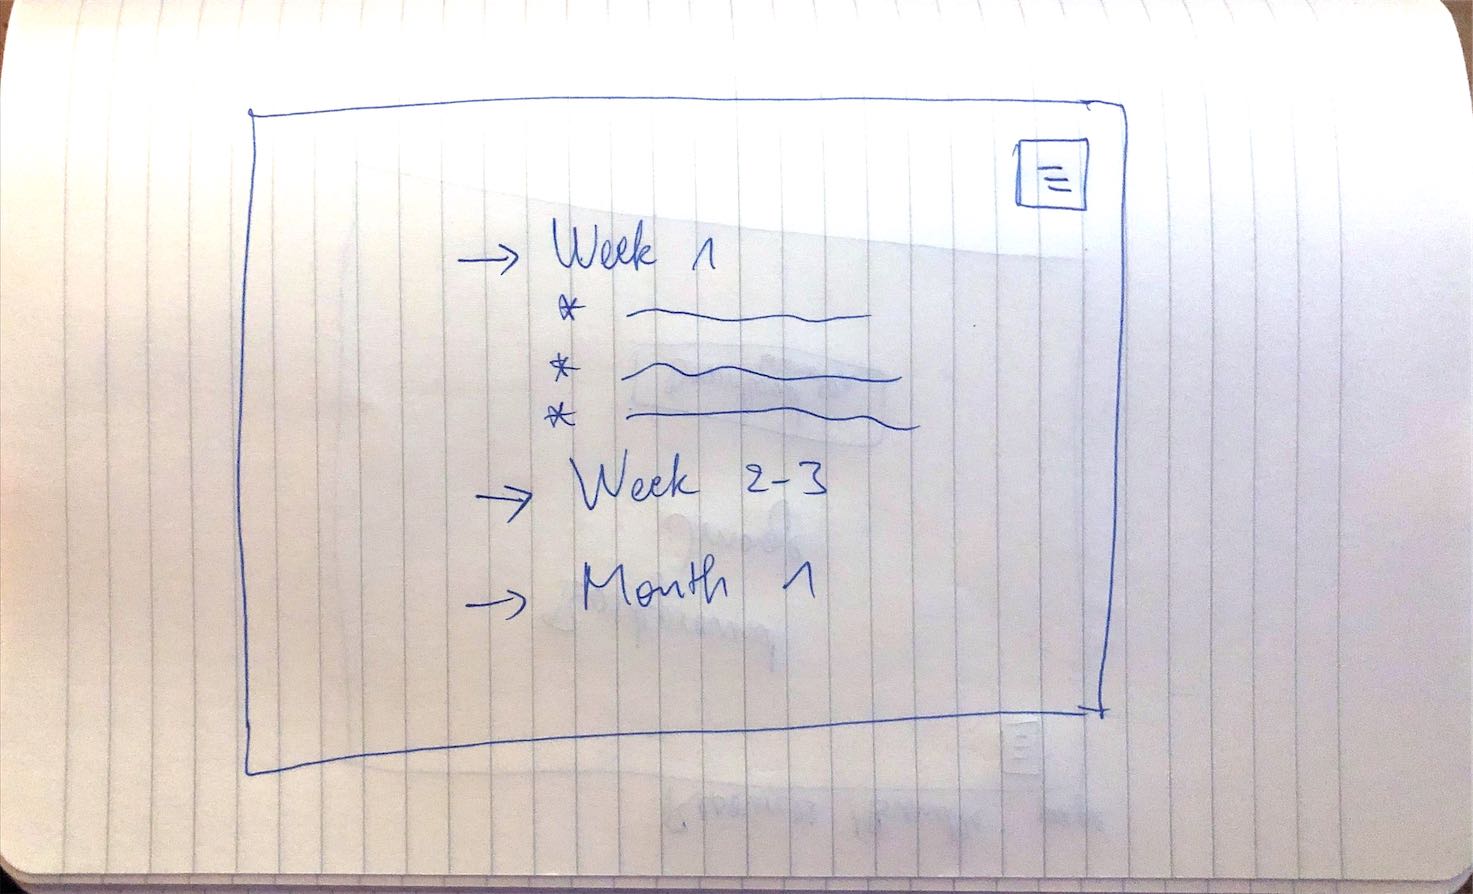 → Week 1
*
*
*
→ Week 2-3
→ Month 1